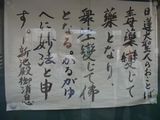 日蓮大聖人のおことば
毒薬變じて
薬となり
衆生變じて佛
となる。かるがゆ
へに妙法と申
す。新池殿御消息